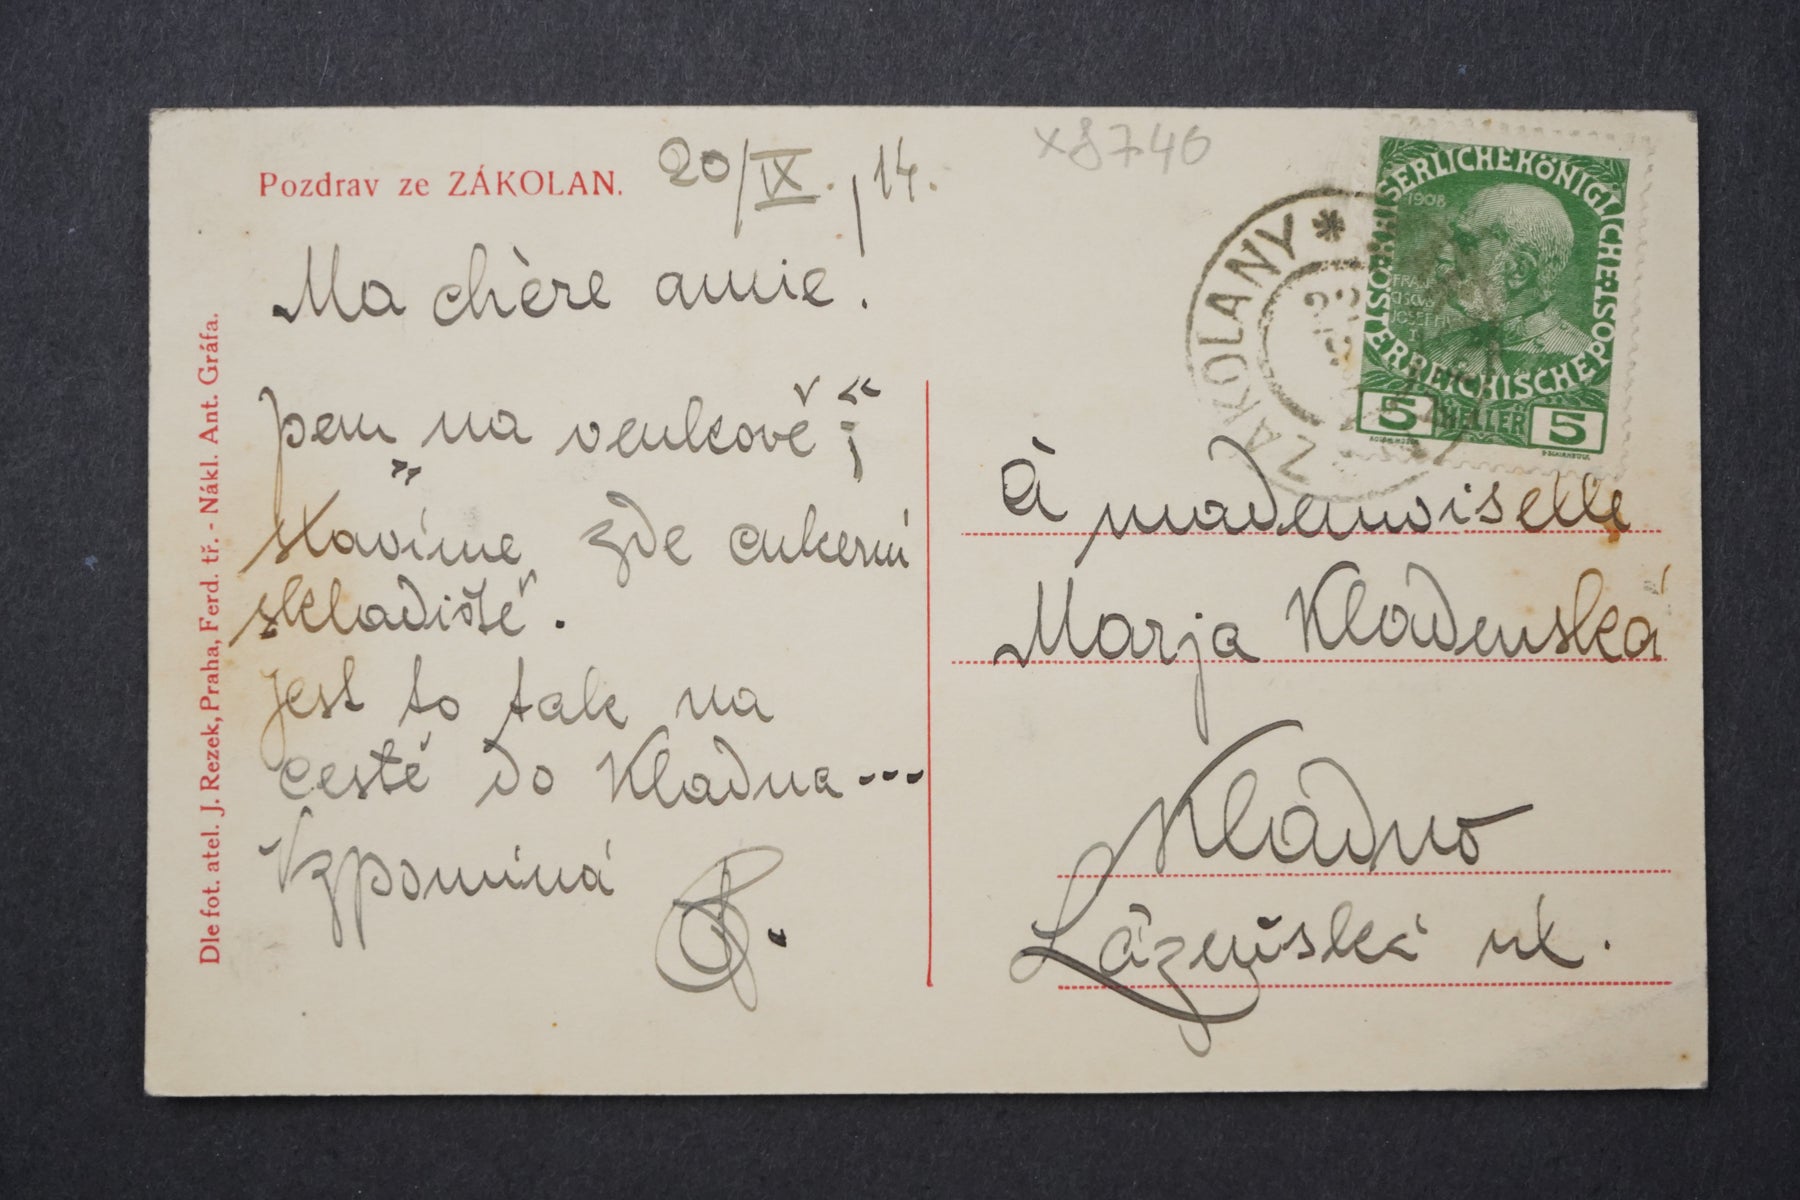 Pozdrav ze ZÁKOLAN.
20/IX./14.
x8746
Ma chère amie!
jsem na venkově";
„stavíme zde cukerní
skladiště.
Jest to tak na
cestě do Kladna ---
Vzpomíná
Dle fot. atel. J. Rezek, Praha, Ferd. tř. - Nákl. Ant. Gráfa.
ZÁKOLANY *
KAISERLICHE KÖNIGLICHE ÖSTERREICHISCHE POST
1908
5 HELLER 5
À mademoiselle
Marja Kladenská
Kládno
Lázeňská ul.